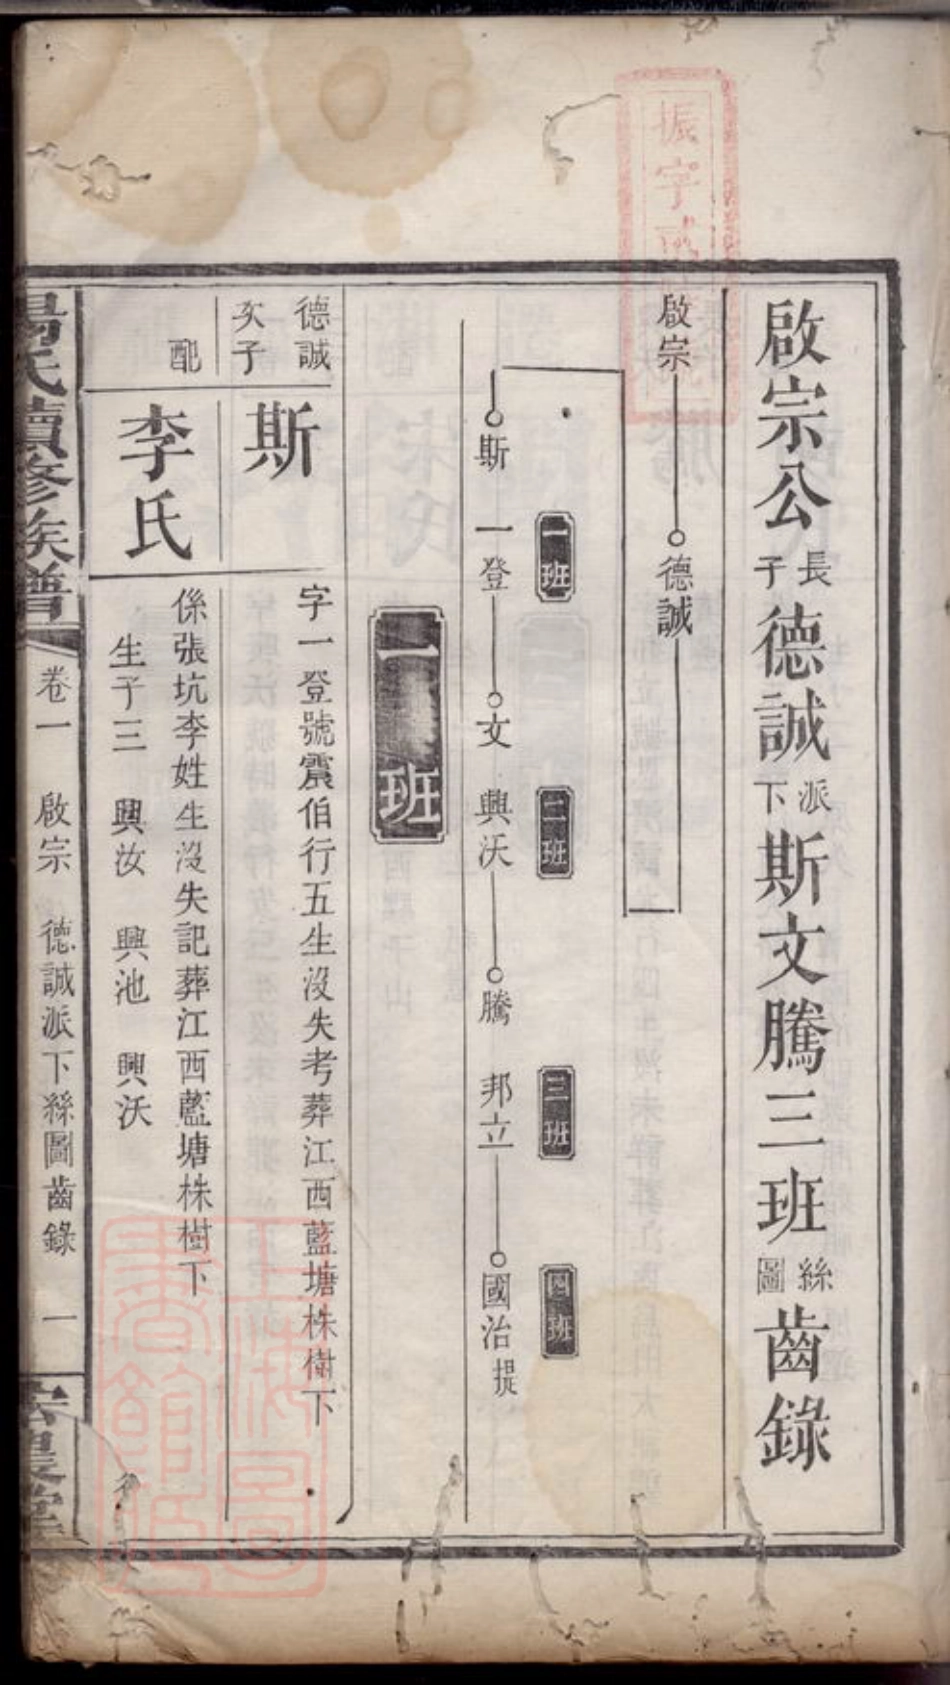 啟宗公長子德誠派下斯文騰三班絲圖齒錄
啟宗 德誠
一班 二班 三班 四班
斯 一登 文 興沃 騰 邦立 國治 提
一班
德誠
次子
斯
字一登號震伯行五生沒失考葬江西藍塘株樹下
配
李氏
係張坑李姓生沒失記葬江西藍塘株樹下
生子三 興汝 興池 興沃
楊氏續修族譜 卷一 啟宗 德誠派下絲圖齒錄 一
振字
上海圖書館藏